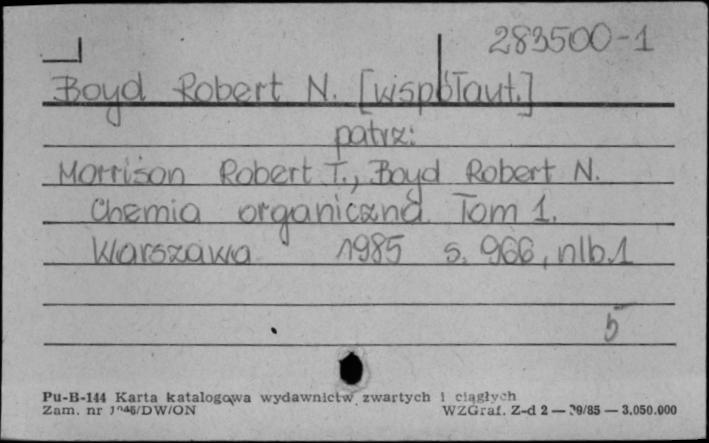 283500-1
Boyd Robert N. [współaut.]
patrz:
Morrison Robert T., Boyd Robert N.
Chemia organiczna. Tom 1.
Warszawa 1985 s. 966, nlb.1
5
Pu-B-144 Karta katalogowa wydawnictw zwartych i ciągłych
Zam. nr /DW/ON WZGraf. Z-d 2 — 3.050.000